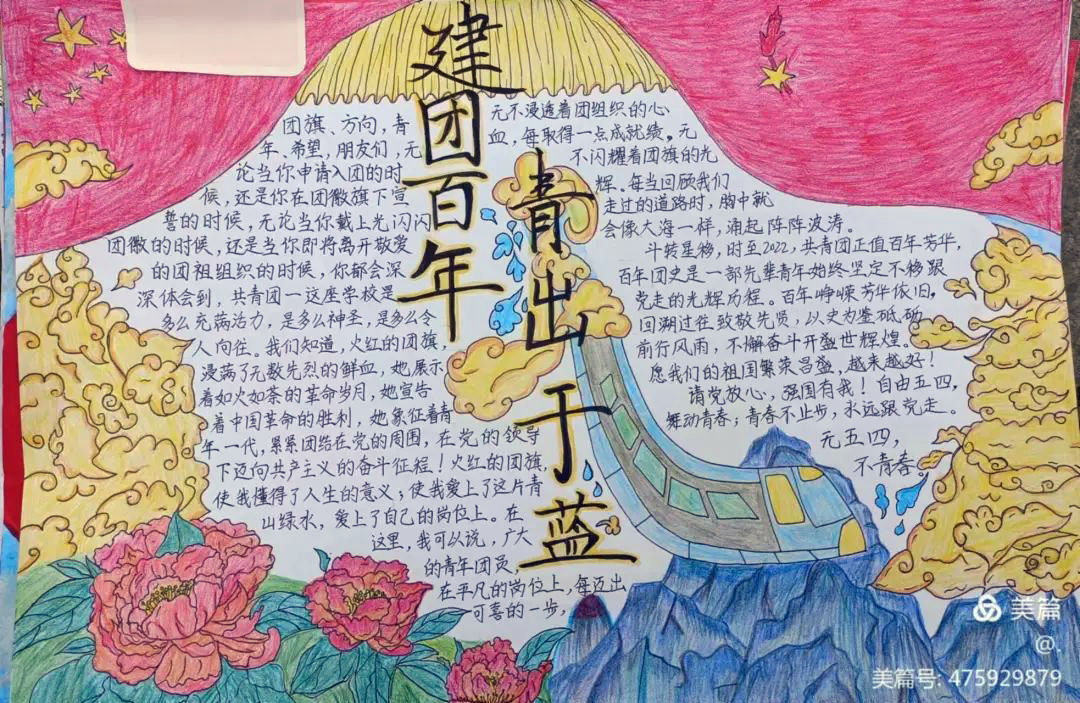 建团百年
青出于蓝
团旗、方向，青
年、希望，朋友们，无
论当你申请入团的时
候，还是你在团徽旗下宣
誓的时候，无论当你戴上光闪闪
团徽的时候，还是当你即将离开敬爱
的团祖组织的时候，你都会深
深体会到，共青团一这座学校是
多么充满活力，是多么神圣，是多么令
人向往。我们知道，火红的团旗，
浸满了无数先烈的鲜血，她展示
着如火如荼的革命岁月，她宣告
着中国革命的胜利，她象征着青
年一代，紧紧团结在党的周围，在党的领导
下迈向共产主义的奋斗征程！火红的团旗，
使我懂得了人生的意义；使我爱上了这片青
山绿水，爱上了自己的岗位上。在
这里，我可以说，广大
的青年团员，
在平凡的岗位上，每迈出
可喜的一步，
无不浸透着团组织的心
血，每取得一点成就绩。无
不闪耀着团旗的光
辉。每当回顾我们
走过的道路时，胸中就
会像大海一样，涌起阵阵波涛。
斗转星移，时至2022，共青团正值百年芳华，
百年团史是一部先辈青年始终坚定不移跟
党走的光辉历程。百年峥嵘芳华依旧，
回溯过往致敬先贤，以史为鉴砥砺
前行风雨，不懈奋斗开盛世辉煌。
愿我们的祖国繁荣昌盛，越来越好！
请党放心，强国有我！自由五四，
舞动青春；青春不止步，永远跟党走。
无五四，
不青春。
美篇
@.
美篇号: 475929879